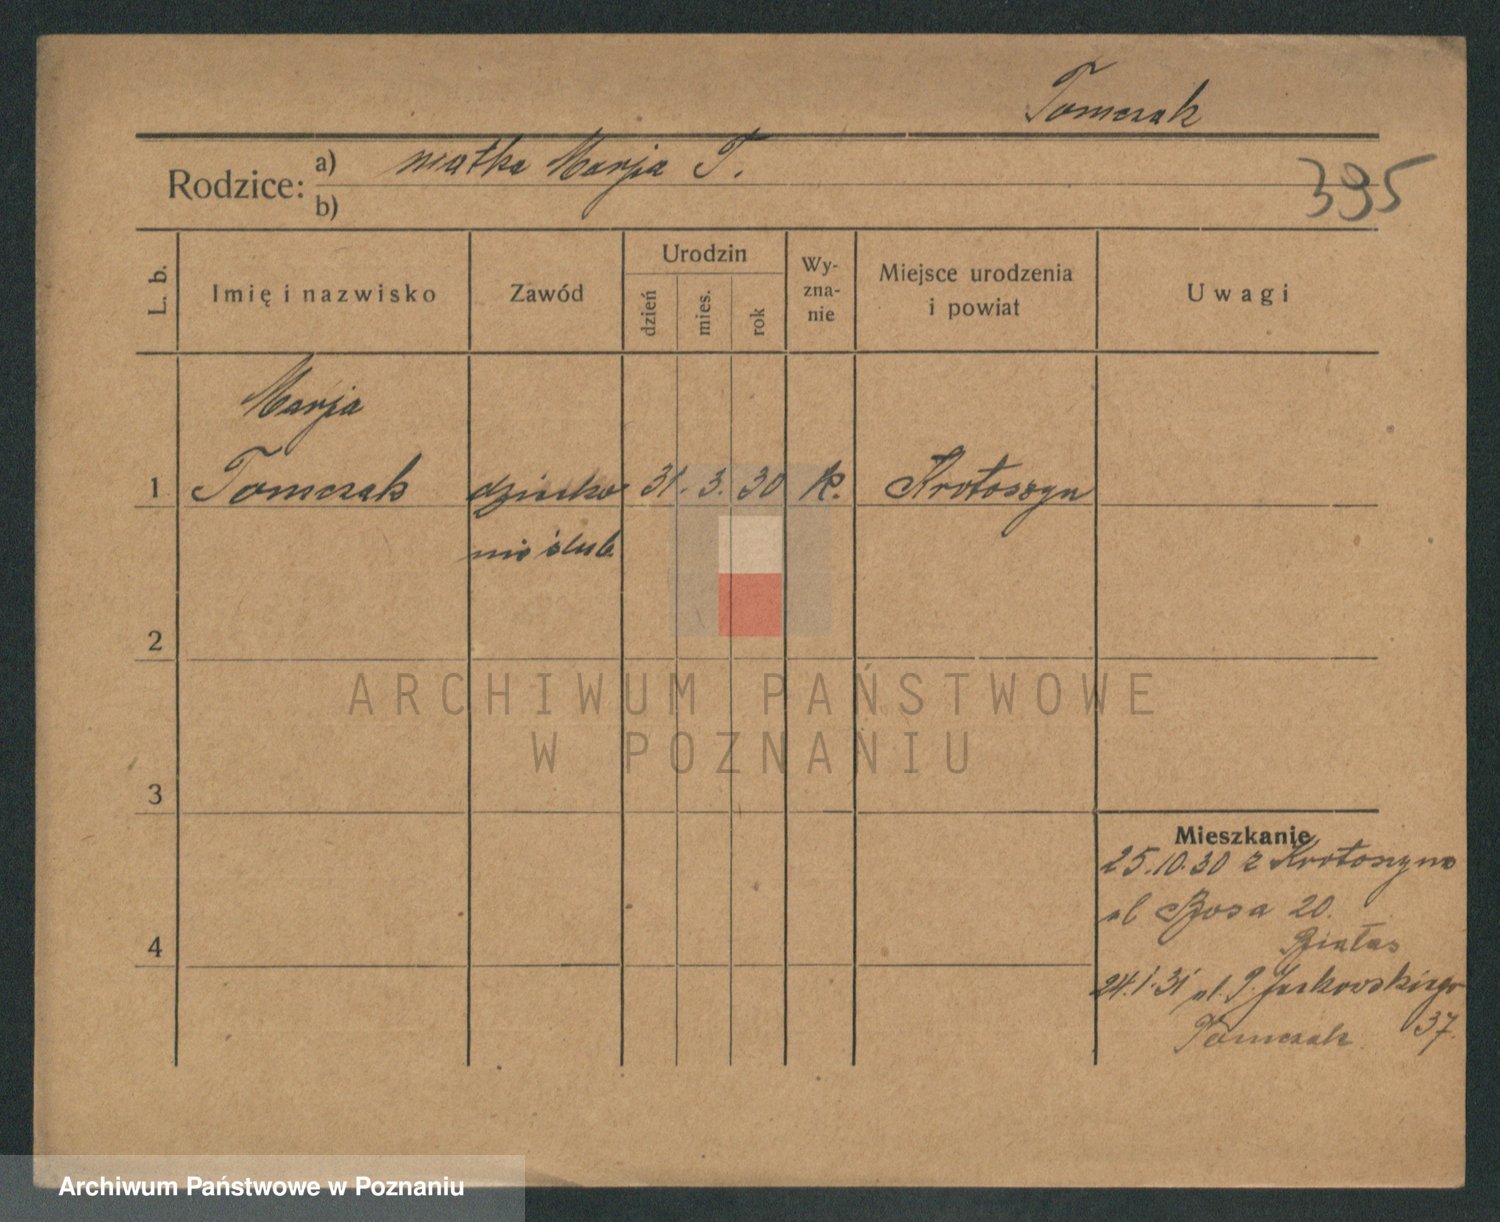 Tomczak
Rodzice: a) matka Marja T.
b)
395
L. b.
Imię i nazwisko
Zawód
Urodzin
dzień
mies.
rok
Wy-
zna-
nie
Miejsce urodzenia
i powiat
Uwagi
Marja
1 Tomczak dziecko 31. 3. 30 k. Krotoszyn
nieślub.
2
3
4
Mieszkanie
25.10.30 z Krotoszyna
ul Bosa 20.
Białas
24.1.31 ul. P. Jackowskiego
Tomczak 37.
ARCHIWUM PAŃSTWOWE
W POZNANIU
Archiwum Państwowe w Poznaniu